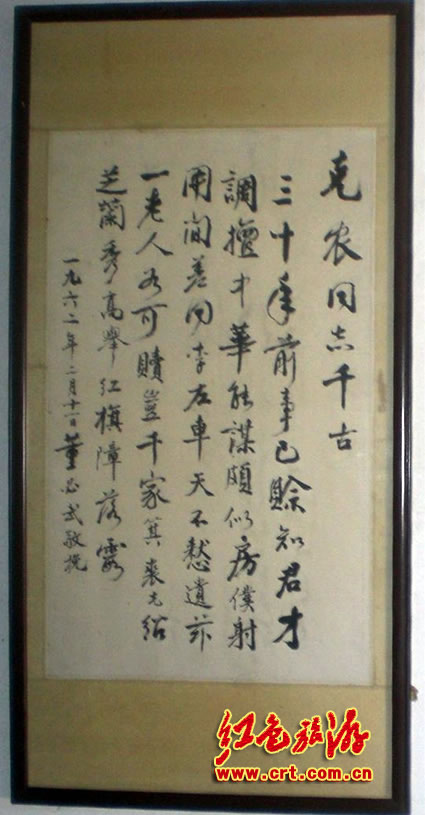 克农同志千古
三十年前事已賒知君才
調擅中華能謀頗似房僕射
用间差同李左車天不憖遺斯
一老人若可贖豈千家箕裘克绍
芝蘭秀高舉红旗障落霞
一九六二年二月十一日董必武敬挽
红色旅游
www.crt.com.cn